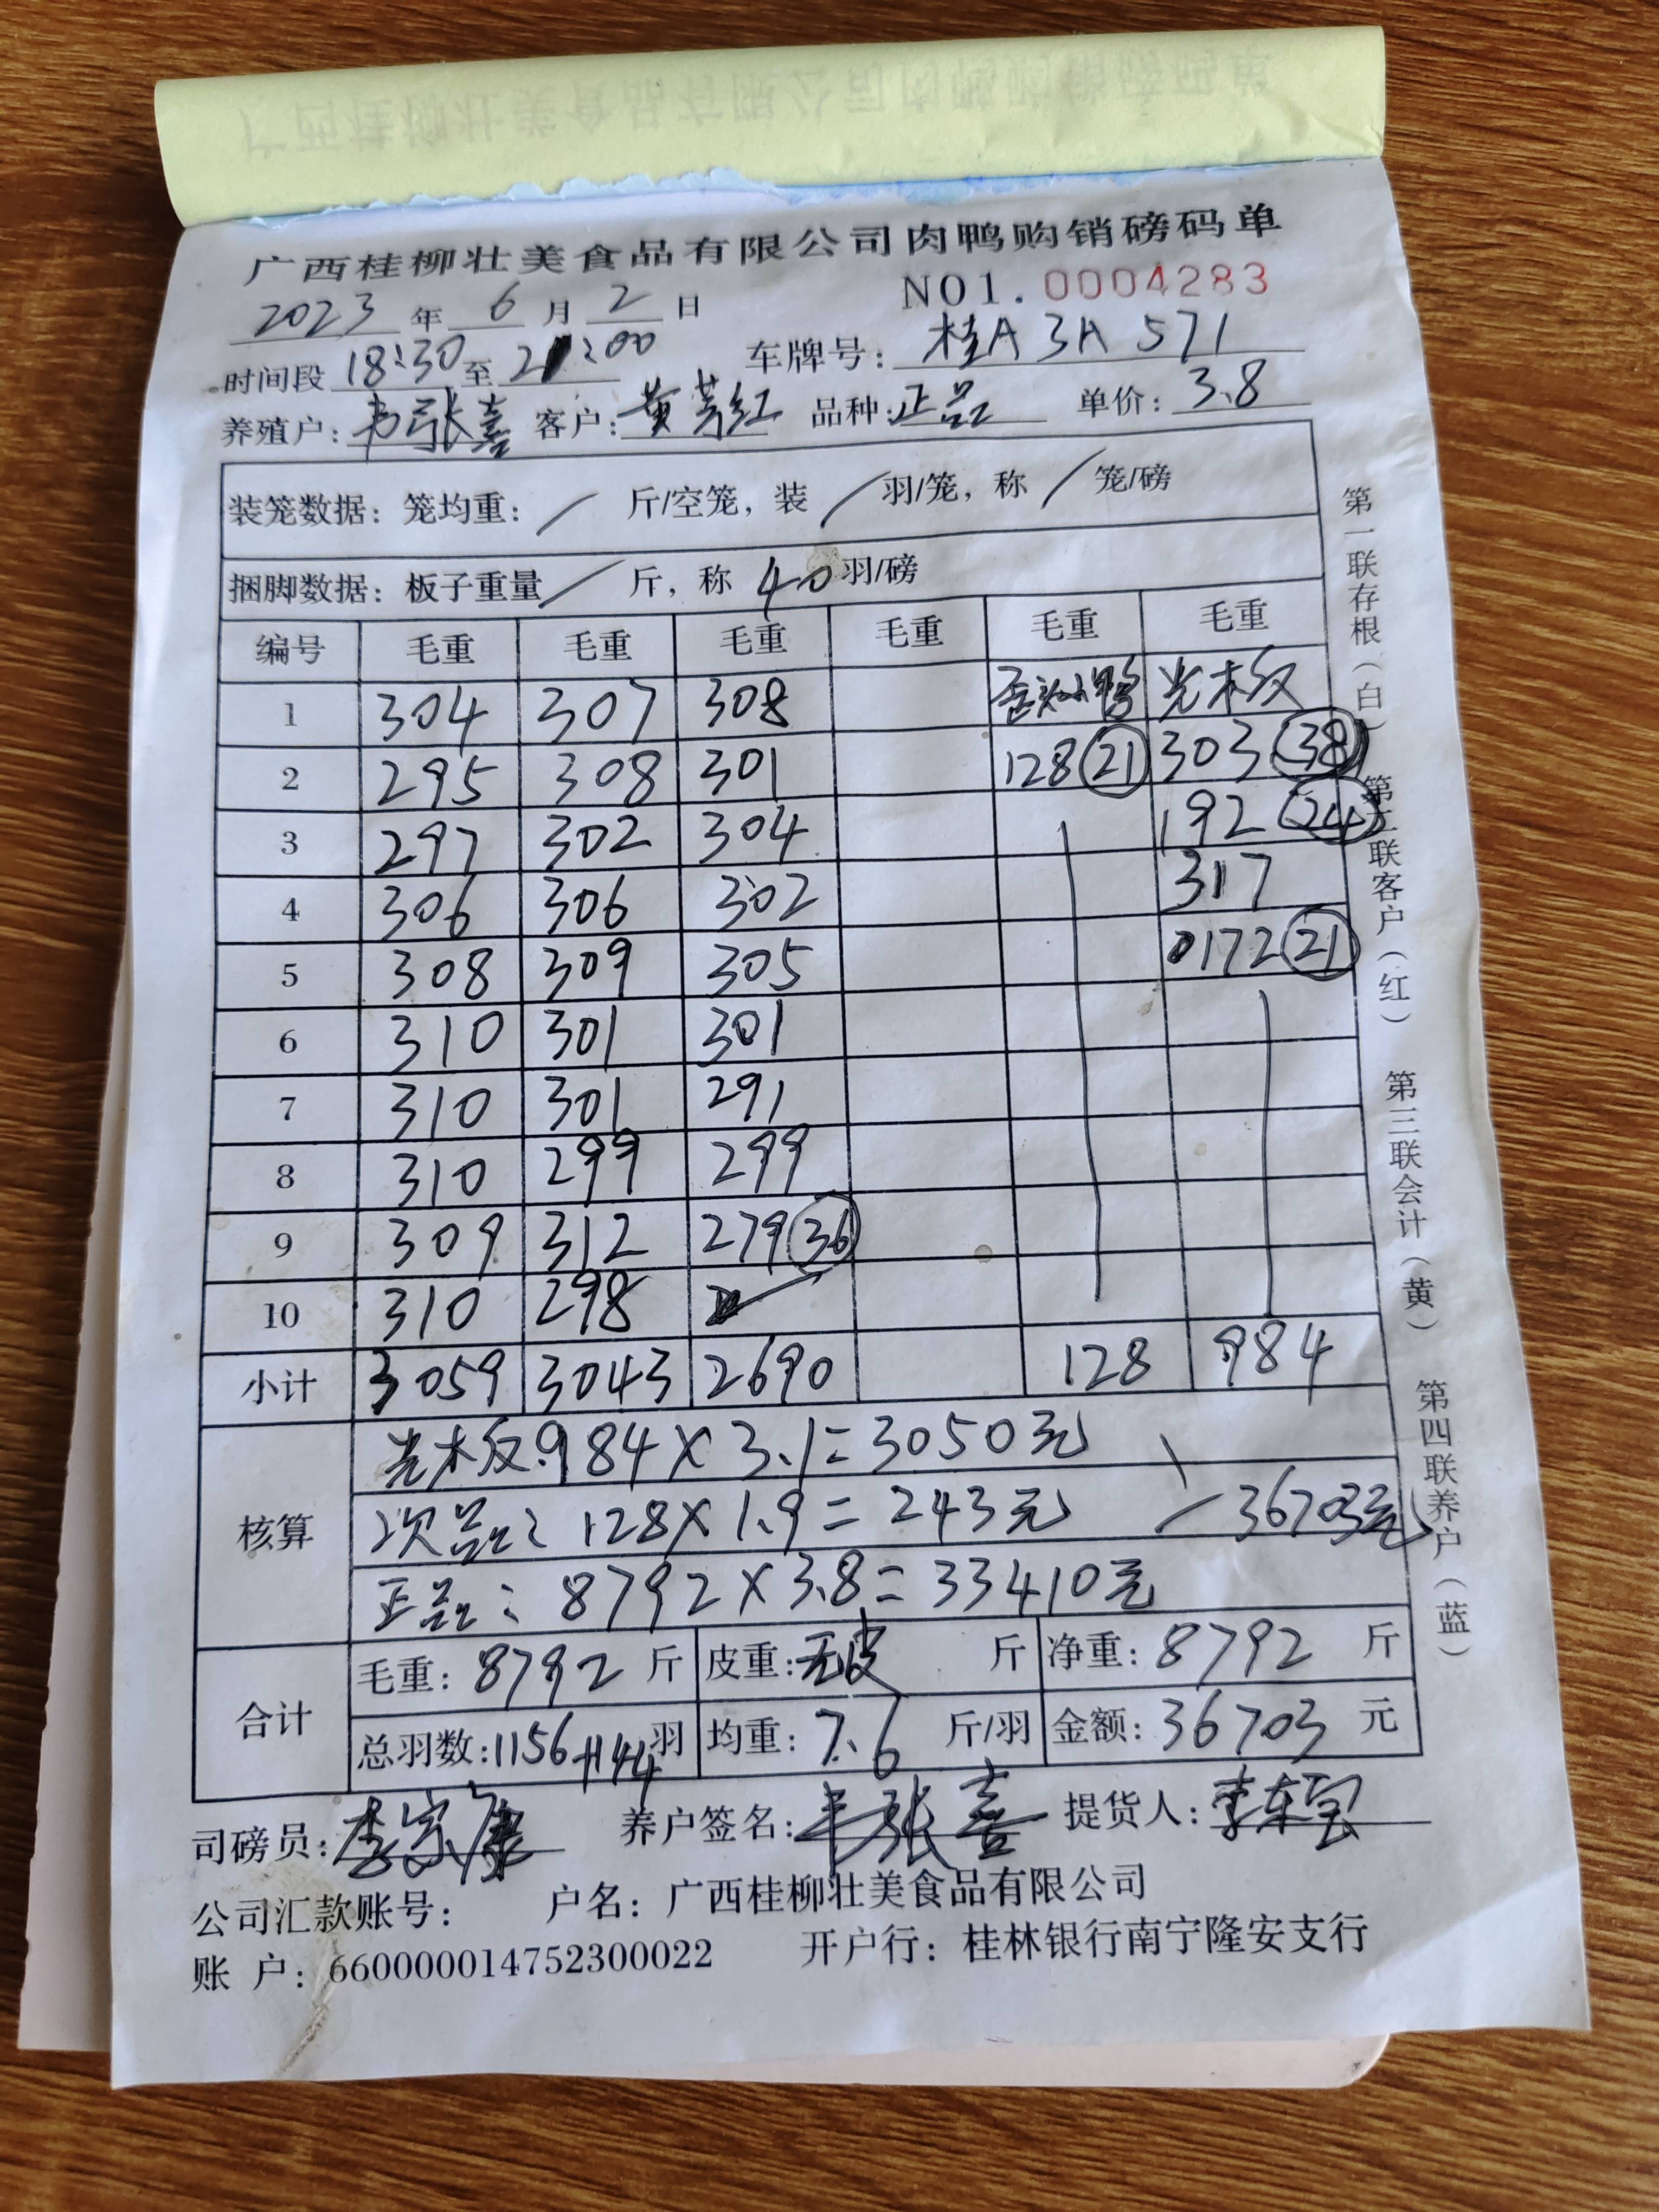 广西桂柳壮美食品有限公司肉鸭购销磅码单
NO1. 0004283
2023 年 6 月 2 日
时间段 18:30 至 21:00 车牌号: 桂A 3A 571
养殖户: 韦张喜 客户: 黄芳红 品种: 正品 单价: 3.8
装笼数据: 笼均重: / 斤/空笼, 装 / 羽/笼, 称 / 笼/磅
捆脚数据: 板子重量 / 斤, 称 40 羽/磅
编号 毛重 毛重 毛重 毛重 毛重 毛重
1 304 307 308 歪头小鸭 光木板
2 295 308 301 128 (21) 303 (38)
3 297 302 304 192 (24)
4 306 306 302 317
5 308 309 305 172 (21)
6 310 301 301
7 310 301 291
8 310 299 299
9 309 312 279 (36)
10 310 298
小计 3059 3043 2690 128 984
核算
光木板:984×3.1=3050元
次品:128×1.9=243元 36703元
正品:8792×3.8=33410元
合计
毛重: 8792 斤 皮重: 无皮 斤 净重: 8792 斤
总羽数: 1156+144 羽 均重: 7.6 斤/羽 金额: 36703 元
司磅员: 李家康 养户签名: 韦张喜 提货人:
公司汇款账号: 户名: 广西桂柳壮美食品有限公司
账 户: 660000014752300022 开户行: 桂林银行南宁隆安支行
第一联存根(白) 第二联客户(红) 第三联会计(黄) 第四联养户(蓝)